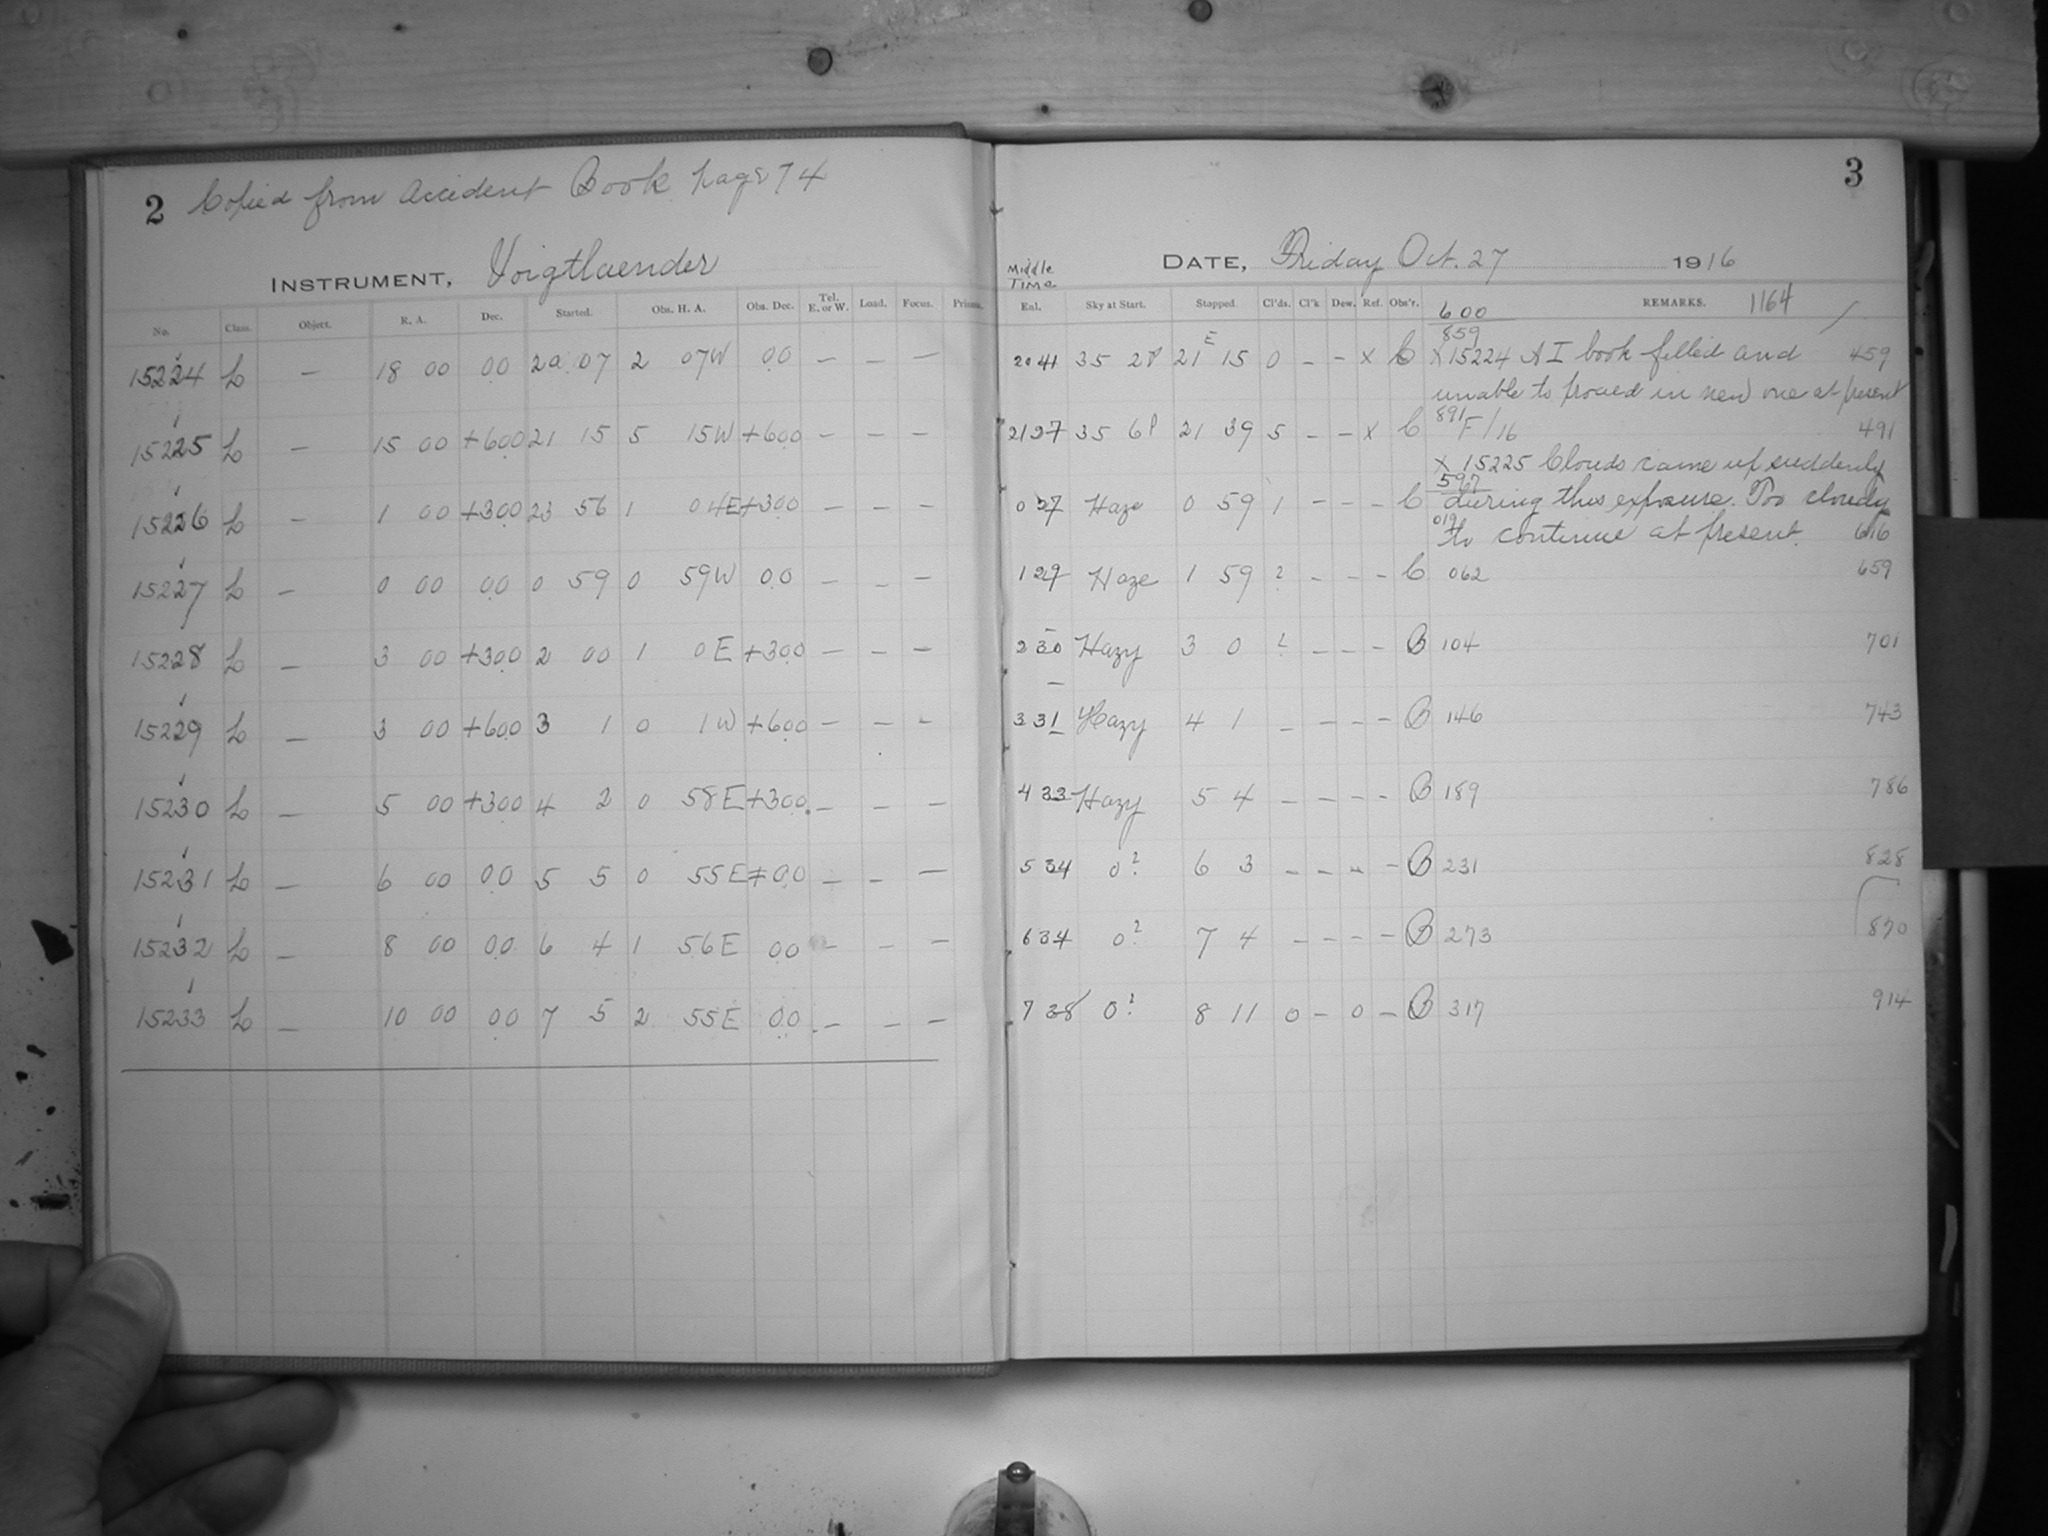 2 Copied from Accident Book page 74
INSTRUMENT, Voigtlaender
No. Class. Object. R. A. Dec. Started. Obs. H. A. Obs. Dec. Tel. E. or W. Load. Focus. Prisms.
15224 L — 18 00 00 20 07 2 07W 00 — — —
15225 L — 15 00 +600 21 15 5 15W +600 — — —
15226 L — 1 00 +300 23 56 1 04E +300 — — —
15227 L — 0 00 00 0 59 0 59W 00 — — —
15228 L — 3 00 +300 2 00 1 0E +300 — — —
15229 L — 3 00 +600 3 1 0 1W +600 — — —
15230 L — 5 00 +300 4 2 0 58E +300 — — —
15231 L — 6 00 00 5 5 0 55E 00 — — —
15232 L — 8 00 00 6 4 1 56E 00 — — —
15233 L — 10 00 00 7 5 2 55E 00 — — —
3
DATE, Friday Oct. 27 1916
Middle Time
Enl. Sky at Start. Stopped. Cl'ds. Cl'k Dew. Ref. Obs'r. REMARKS. 1164
600
859
2041 35 2P 21 E 15 0 — — x C X 15224 A I book filled and 459
unable to proceed in new one at present
891
2127 35 6P 21 39 5 — — x C F/16 491
X 15225 Clouds came up suddenly
597
027 Haze 0 59 1 — — — C during this exposure. Too cloudy
019 to continue at present. 616
129 Haze 1 59 ? — — — C 062 659
230 Hazy 3 0 ? — — — B 104 701
331 Hazy 4 1 — — — — B 146 743
433 Hazy 5 4 — — — — B 189 786
534 0? 6 3 — — — — B 231 828
634 0? 7 4 — — — — B 273 870
738 0? 8 11 0 — 0 — B 317 914